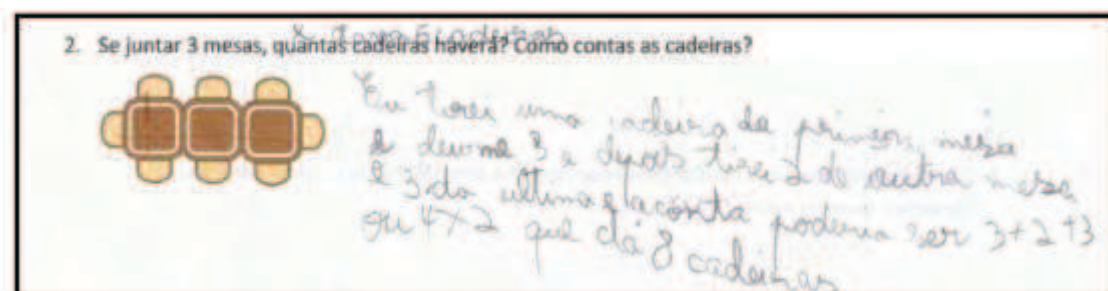 2. Se juntar 3 mesas, quantas cadeiras haverá? Como contas as cadeiras?
Eu tirei uma cadeira da mesa
e deu me 3 e depois tirei 2 da outra mesa
e 3 da ultima e a conta poderia ser 3+2+3
ou 4×2 que dá 8 cadeiras